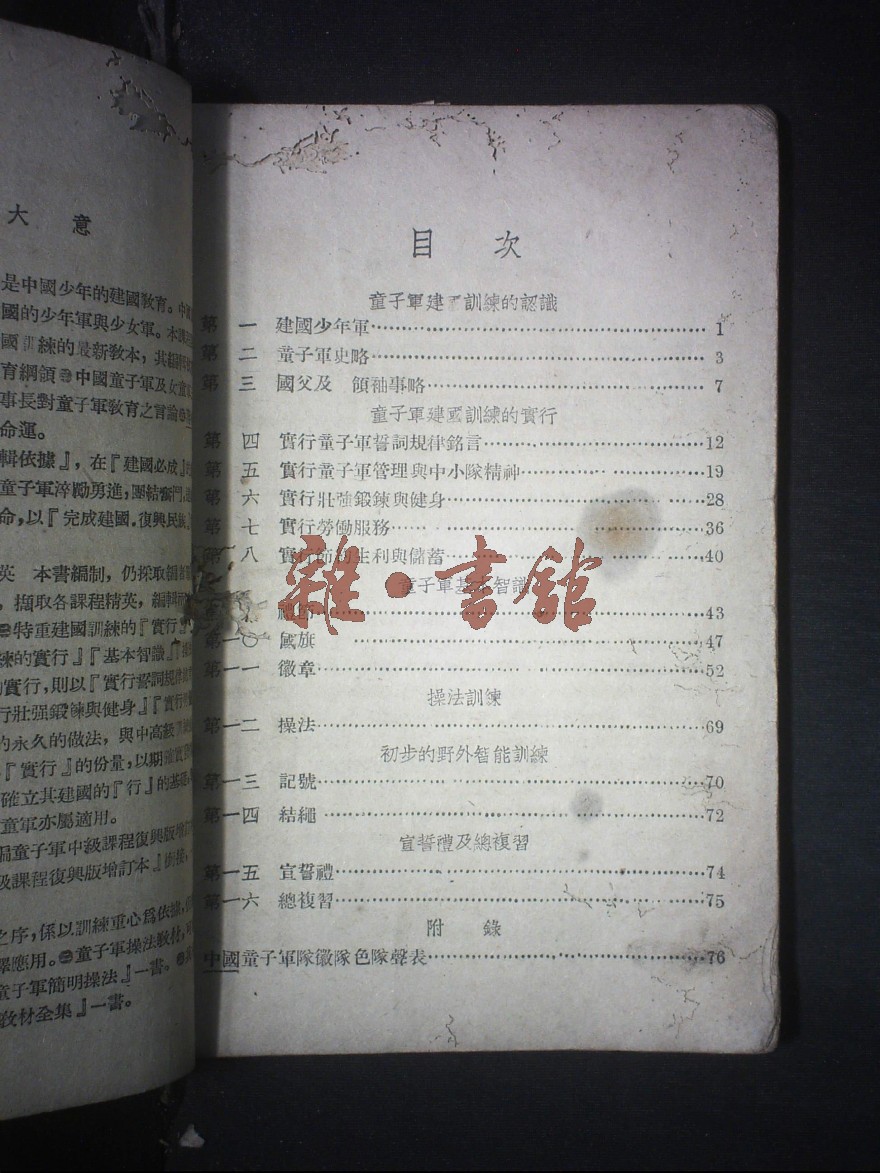 大意
是中國少年的建國教育。中
國的少年軍與少女軍。本
國訓練的最新教本，其編
育綱領㊁中國童子軍及女童
事長對童子軍教育之言論
命運。
輯依據』，在『建國必成』
童子軍淬勵勇進，團結奮鬥，
命，以『完成建國，復興民族
英 本書編制，仍採取編
，擷取各課程精英，編
㊁特重建國訓練的『實行
練的實行』『基本智識』
實行，則以『實行誓詞規律
行壯强鍛鍊與健身』『實行
的永久的做法，與中高級
『實行』的份量，以期確實
確立其建國的『行』的基礎，
童軍亦屬適用。
編童子軍中級課程復興版增訂
級課程復興版增訂本』銜接，
之序，係以訓練重心爲依據，
擇應用。㊁童子軍操法教材，
童子軍簡明操法』一書。
教材全集』一書。
目 次
童子軍建 訓練的認識
第 一 建國少年軍 1
第 二 童子軍史略 3
第 三 國父及 領袖事略 7
童子軍建國訓練的實行
第 四 實行童子軍誓詞規律銘言 12
第 五 實行童子軍管理與中小隊精神 19
第 六 實行壯强鍛鍊與健身 28
第 七 實行勞働服務 36
第 八 實行節約生利與儲蓄 40
童子軍基本智識
禮節 43
一〇 國旗 47
第一一 徽章 52
操法訓練
第一二 操法 69
初步的野外智能訓練
第一三 記號 70
第一四 結繩 72
宣誓禮及總複習
第一五 宣誓禮 74
第一六 總複習 75
附 錄
中國童子軍隊徽隊色隊聲表 76
雜·書館